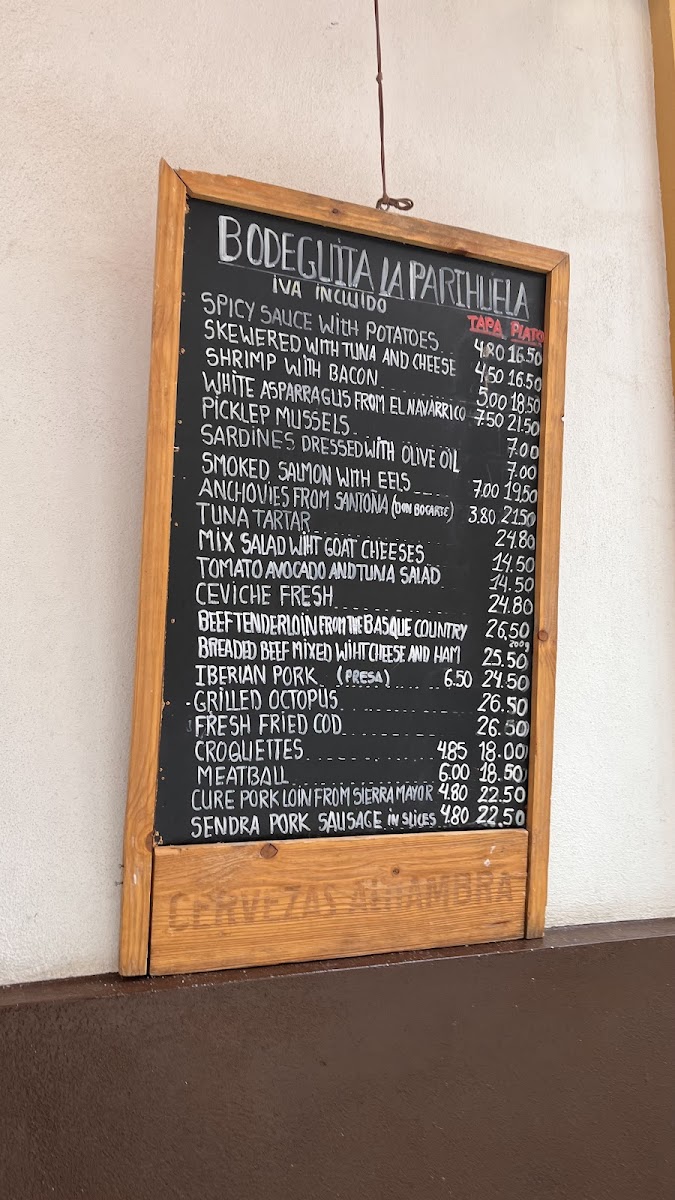 BODEGUITA LA PARIHUELA
IVA INCLUIDO
TAPA PLATO
SPICY SAUCE WITH POTATOES 4.80 16.50
SKEWERED WITH TUNA AND CHEESE 4.50 16.50
SHRIMP WITH BACON 5.00 18.50
WHITE ASPARRAGUS FROM EL NAVARRICO 7.50 21.50
PICKLEP MUSSELS 7.00
SARDINES DRESSED WITH OLIVE OIL 7.00
SMOKED SALMON WITH EELS 7.00 19.50
ANCHOVIES FROM SANTOÑA (DON BOCARTE) 3.80 21.50
TUNA TARTAR 24.80
MIX SALAD WIHT GOAT CHEESES 14.50
TOMATO AVOCADO AND TUNA SALAD 14.50
CEVICHE FRESH 24.80
BEEF TENDERLOIN FROM THE BASQUE COUNTRY 26.50
200g
BREADED BEEF MIXED WIHT CHEESE AND HAM 25.50
IBERIAN PORK (PRESA) 6.50 24.50
GRILLED OCTOPUS 26.50
FRESH FRIED COD 26.50
CROQUETTES 4.85 18.00
MEATBALL 6.00 18.50
CURE PORK LOIN FROM SIERRA MAYOR 4.80 22.50
SENDRA PORK SAUSAGE IN SLICES 4.80 22.50
CERVEZAS ALHAMBRA